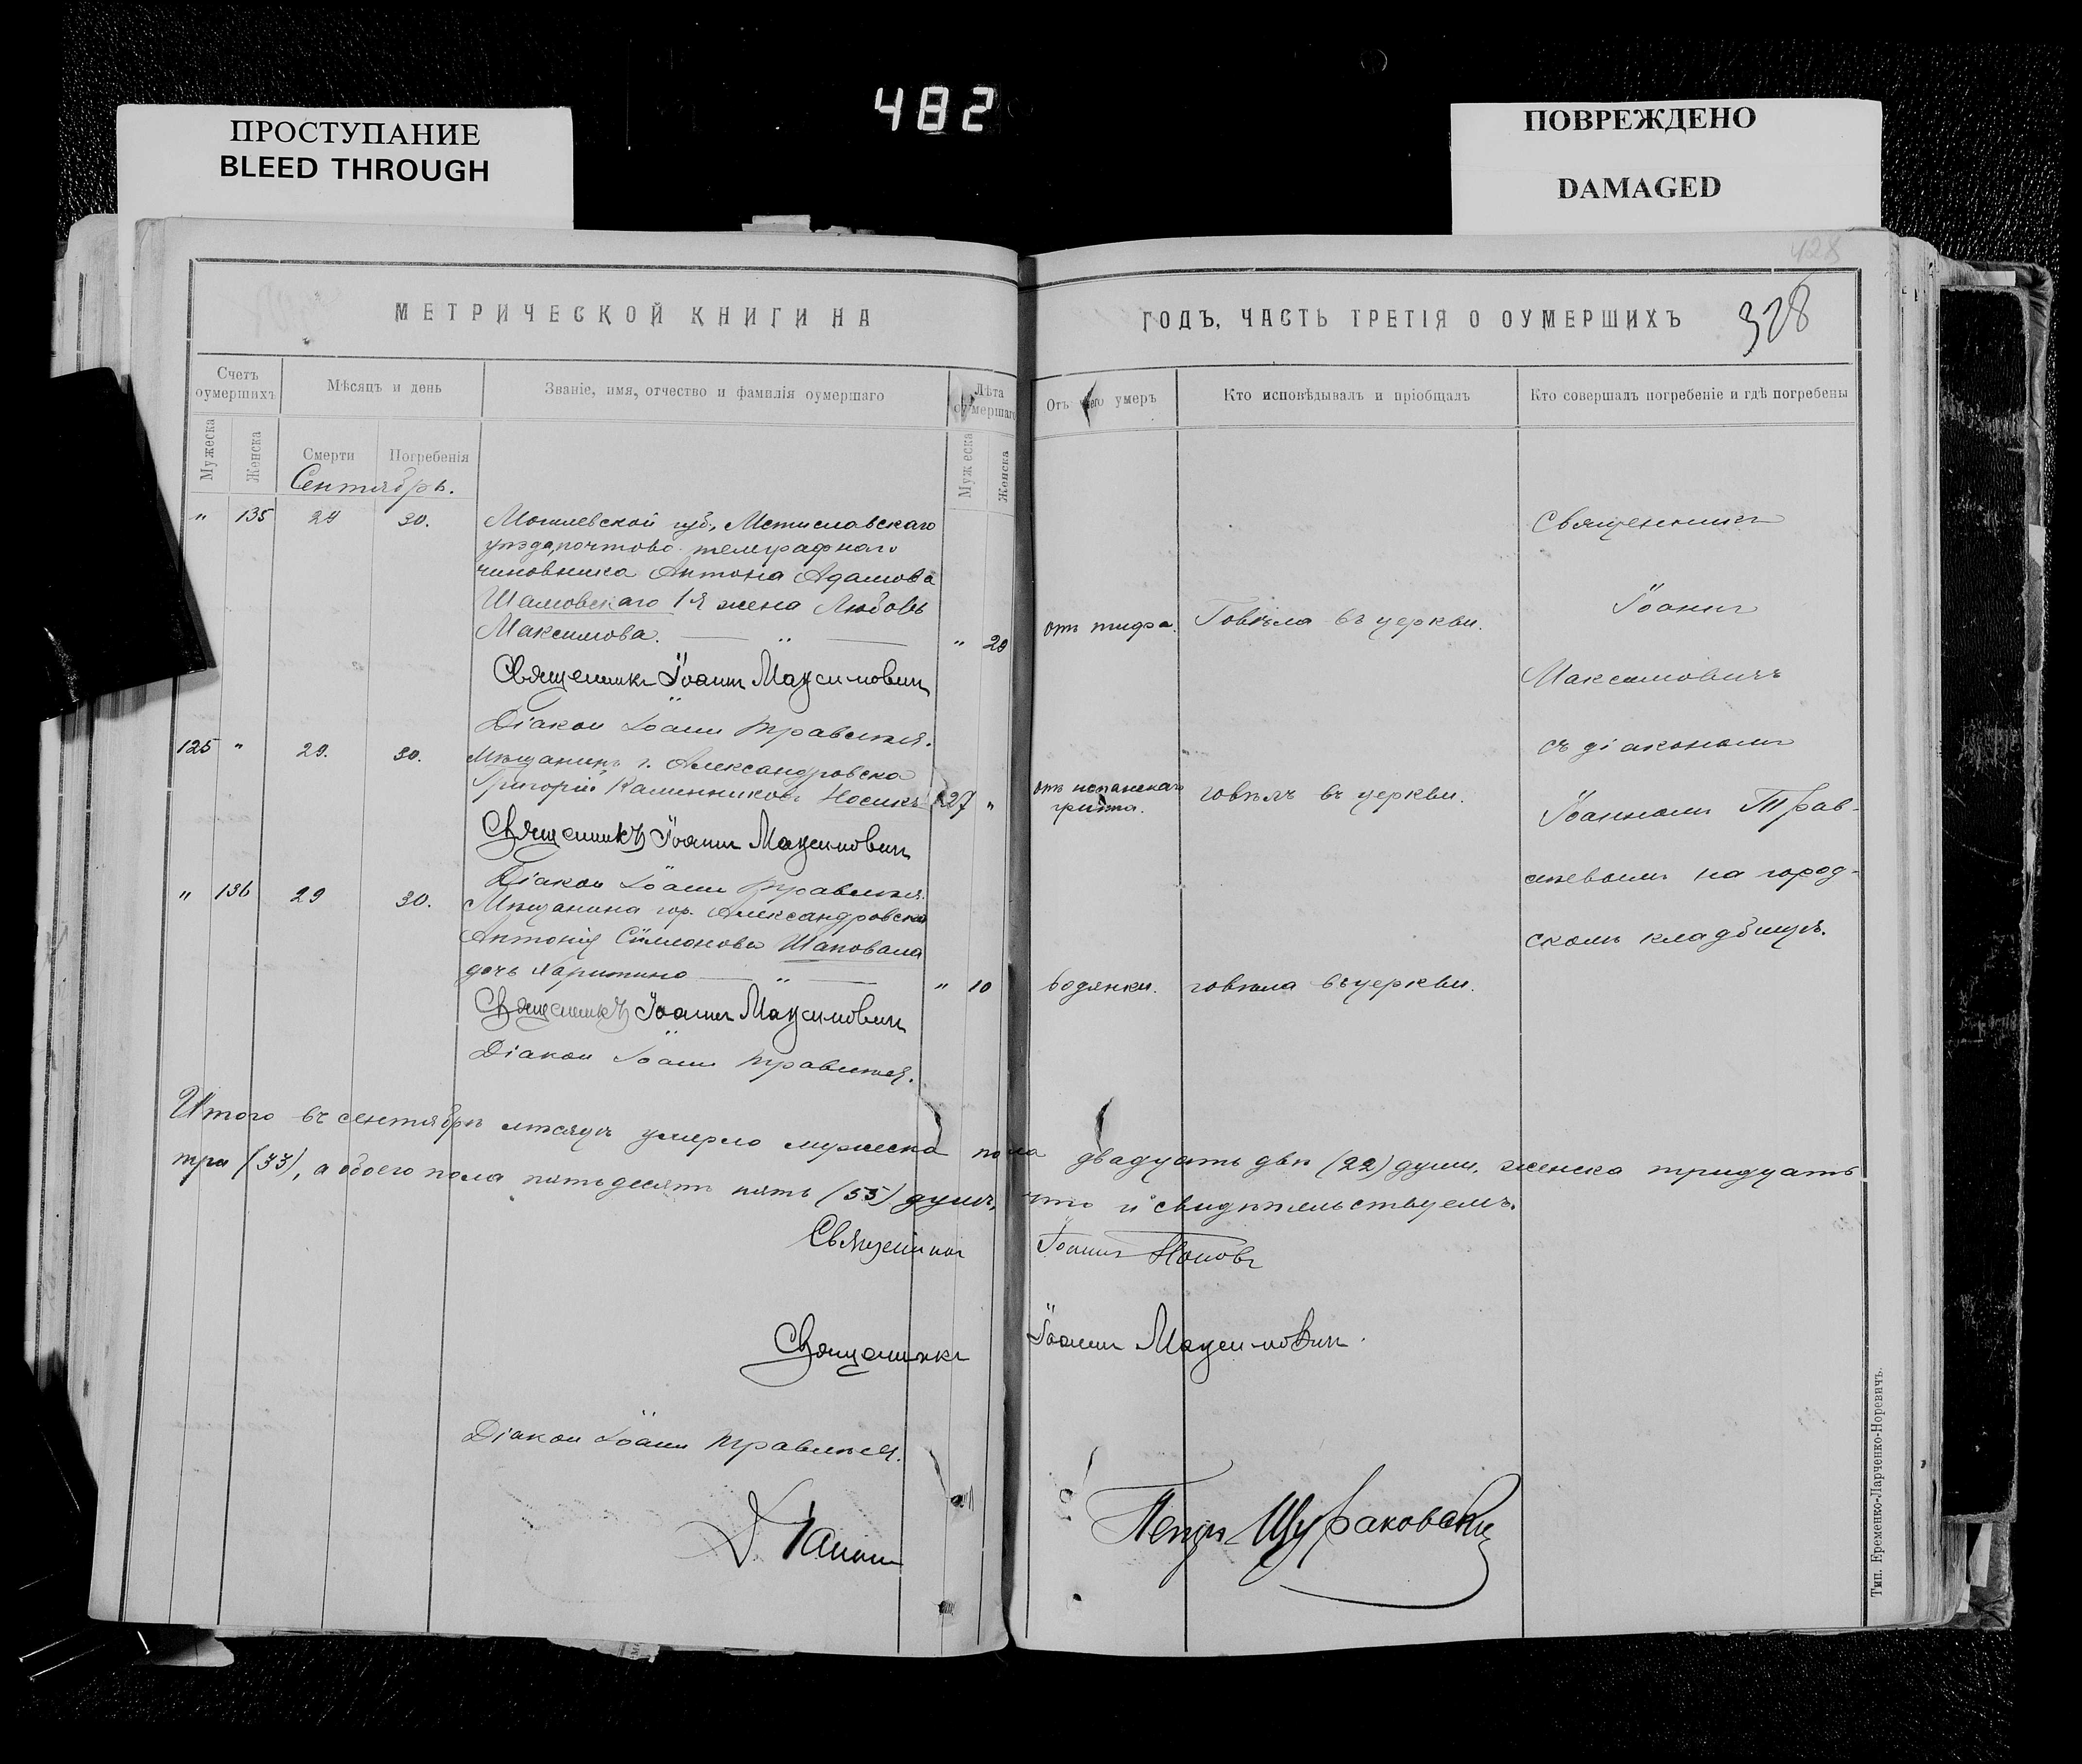 482
ПРОСТУПАНИЕ
BLEED THROUGH
ПОВРЕЖДЕНО
DAMAGED
428
328
МЕТРИЧЕСКОЙ КНИГИ НА
ГОДЪ, ЧАСТЬ ТРЕТІЯ О ОУМЕРШИХЪ
Счетъ оумершихъ
Мужеска
Женска
Мѣсяцъ и день
Смерти
Погребенія
Званіе, имя, отчество и фамилія оумершаго
Лѣта оумершаго
Мужеска
Женска
Отъ чего умеръ
Кто исповѣдывалъ и пріобщалъ
Кто совершалъ погребеніе и гдѣ погребены
Сентябрь.
" 135 29 30.
Могилевской губ., Мстиславскаго
уѣзда, почтово-телеграфнаго
чиновника Антона Адамова
Шамовскаго 1я жена Любовь
Максимова. — " —
" 20
отъ тифа.
Говѣла въ церкви.
Священникъ Іоаннъ Максимович
Діакон Іоанн Травлѣев.
125 " 29. 30.
Мѣщанинъ г. Александровска
Григорій Калинниковъ Носикъ
27 "
отъ испанскаго
гриппа.
говѣлъ въ церкви.
Священникъ Іоанн Максимович
Діакон Іоанн
" 136 29 30.
Мѣщанина гор. Александровска
Антонія Сѵмеонова Шаповала
дочь Харитина — " —
" 10
водянки.
говѣла въ церкви.
Священникъ Іоаннъ Максимович
Діакон Іоанн
Священникъ
Іоаннъ
Максимовичъ
съ діакономъ
Іоанномъ Трав-
на город-
скомъ кладбищѣ.
Итого въ сентябрѣ мѣсяцѣ умерло мужеска пола двадцать двѣ (22) души, женска тридцать
три (33), а обоего пола пятьдесятъ пять (55) душъ, что и свидѣтельствуемъ.
Священникъ Іоаннъ Поповъ
Священникъ Іоанн Максимович.
Діакон Іоанн
Петръ Щураковскій
Тип. Еременко-Ларченко-Норевичъ.